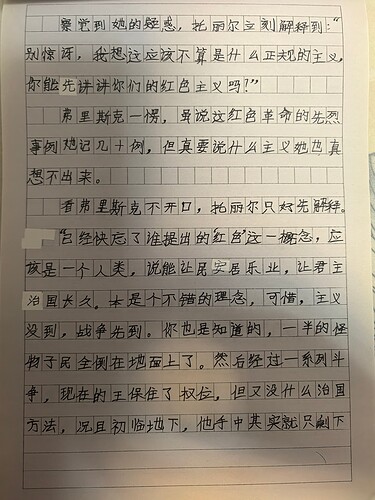 察觉到她的疑惑，托丽尔立刻解释到：“
别惊讶，我想这应该不算是什么正规的主义，
你能先讲讲你们的红色主义吗？”
弗里斯克一愣，虽说这红色革命的先烈
事例她记几十例，但真要说什么主义她也真
想不出来。
看弗里斯克不开口，托丽尔只好先解释。
“已经快忘了谁提出的“红色”这一概念，应
该是一个人类，说能让民安居乐业，让君主
治国长久。本是个不错的理念，可惜，主义
没到，战争先到。你也是知道的，一半的怪
物子民全倒在地面上了。然后经过一系列斗
争，现在的王保住了权位，但又没什么治国
方法，况且初临地下，他手中其实就只剩下